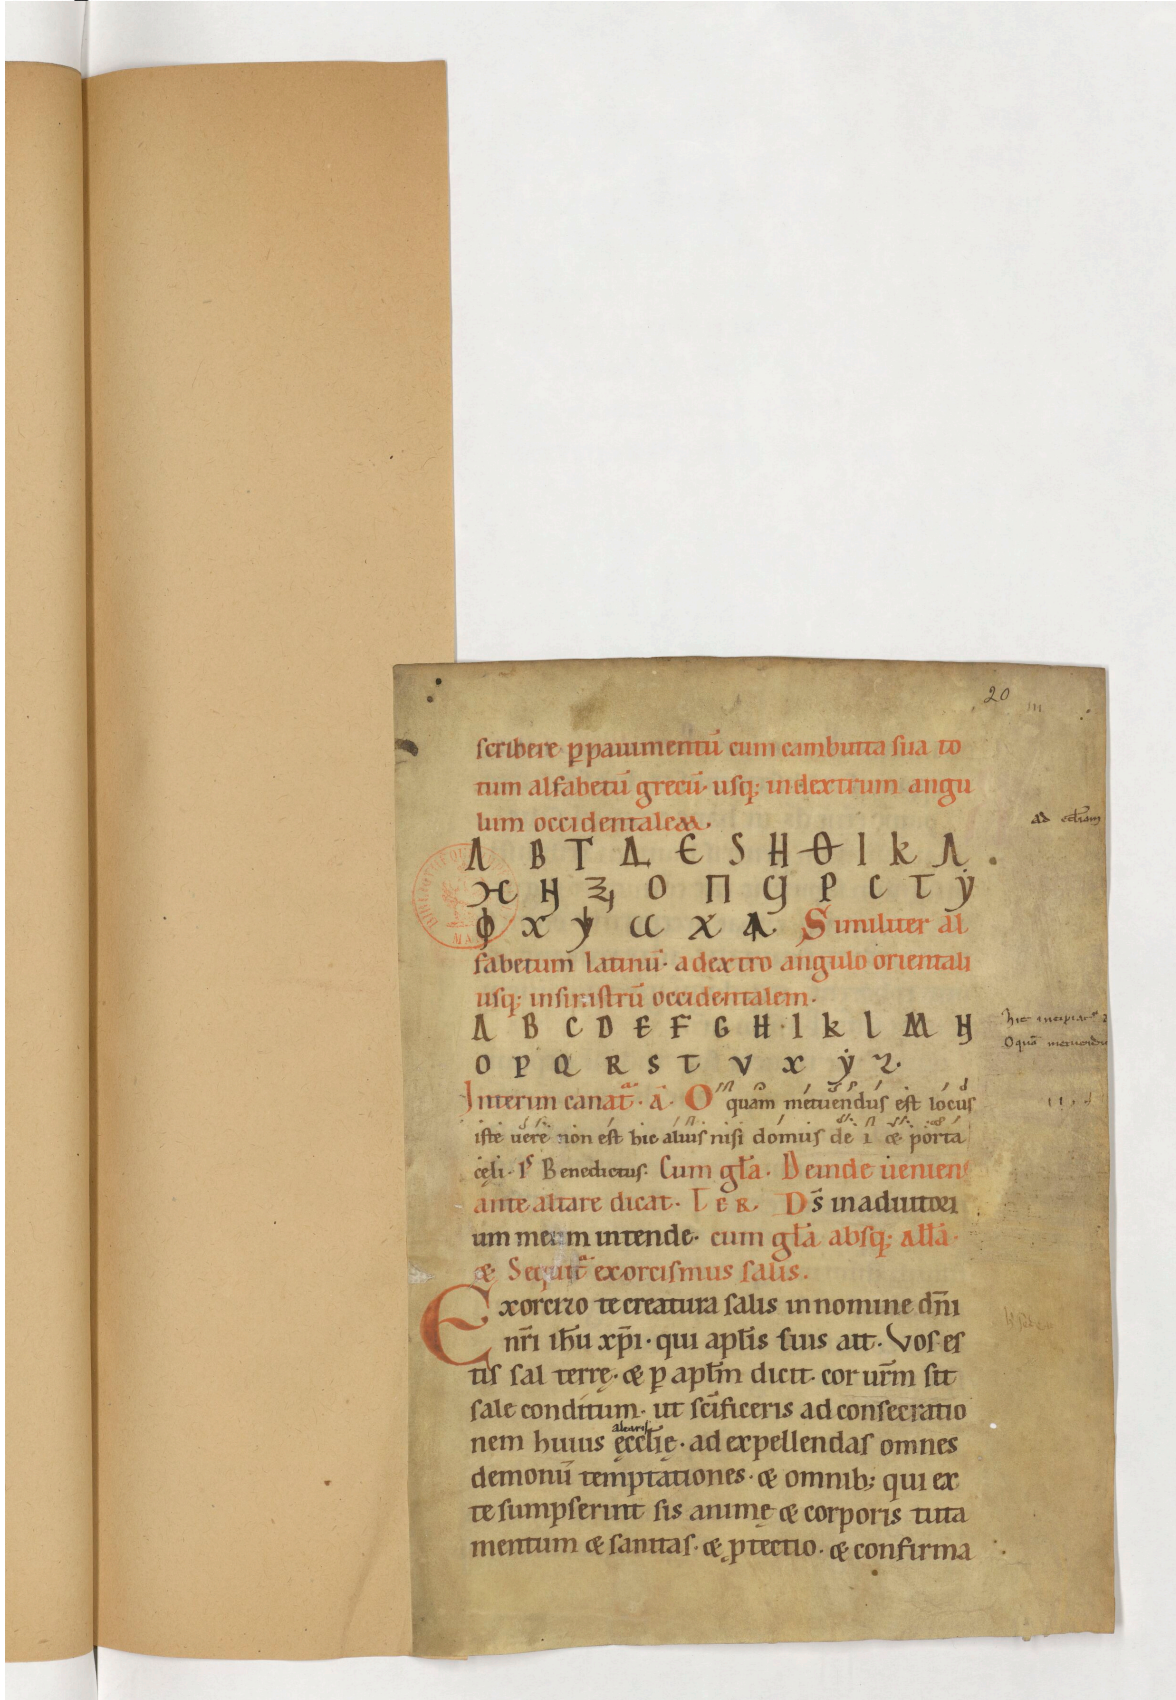 20
scribere p̱ pauimentū cum cambutta sua to
tum alfabetū grecū· usq; in dextrum angu
lum occidentalem.
Λ B T Δ Є S H Θ I K Λ
Ж H Ѯ O Π Ϥ P C T ẏ
ϕ X Ψ Ѡ X A. Similiter al
fabetum latinū· a dextro angulo orientali
usq; in sinistrū occidentalem.
A B C D E F G H · I K L M N
O P Q R S T V X ẏ Z.
Interim canat̄· A̅· O quam metuendus est locus
iste uere non est hic aliud nisi domus dei & porta
cęli· Ps Benedictus. Cum gl̄a. Deinde ueniens
ante altare dicat. TER. D̄s in adiutori
um meum intende· cum gl̄a absq; all̄a·
& Sequit̄ exorcismus salis.
Exorcizo te creatura salis in nomine dn̄i
nr̄i ih̄u xp̄i· qui apl̄is suis ait. Vos es
tis sal terrę· & p̱ apl̄m dicit· cor ur̄m sit
sale conditum· ut sc̄ificeris ad consecratio
nem huius ęccl̄ię· ad expellendas omnes
altaris
demonū temptationes· & omnib; qui ex
te sumpserint sis animę & corporis tuta
mentum & sanitas· & ꝓtectio· & confirma
ad eccl̄iam
hic incipiat̄
O quā metuendus